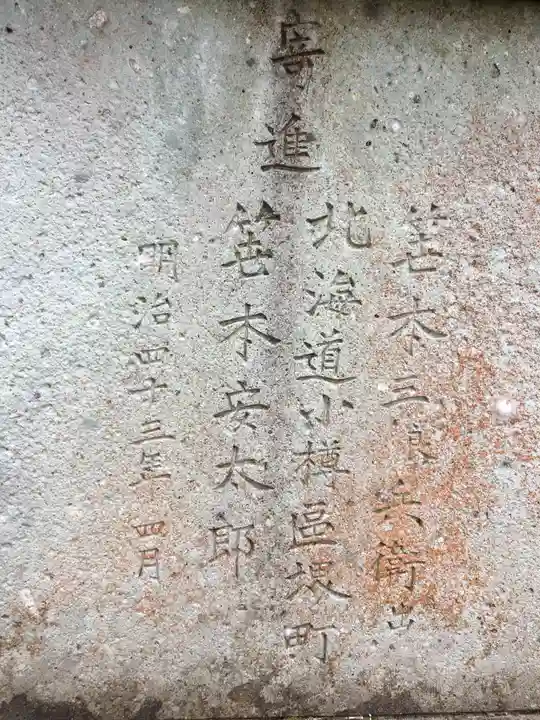 寄進
笹木三良兵衛出
北海道小樽區堺町
笹木安太郎
明治四十三年 四月